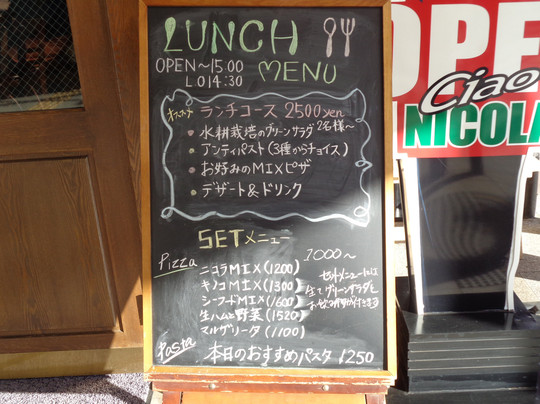 LUNCH
MENU
OPEN~15:00
L.O14:30
オススメ ランチコース 2500yen
2名様~
・水耕栽培のグリーンサラダ
・アンティパスト(3種からチョイス)
・お好みのMIXピザ
・デザート&ドリンク
SETメニュー
1000~
Pizza
ニコラMIX(1200)
キノコMIX(1300)
シーフードMIX(1600)
生ハムと野菜(1520)
マルゲリータ(1100)
セットメニューには
全てグリーンサラダと
お飲み物が付きます
Pasta
本日のおすすめパスタ 1250
OPE
Ciao
NICOLA